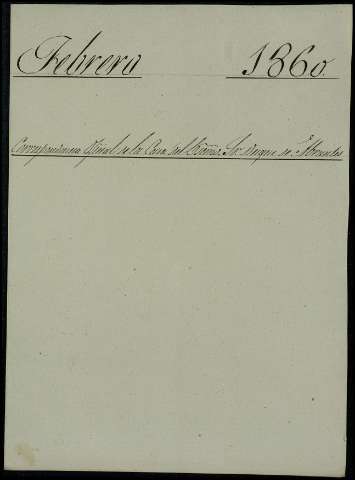 Febrero 1860.
Correspondencia Oficial de la Casa del Excmo. Sr. Duque de Abrantes